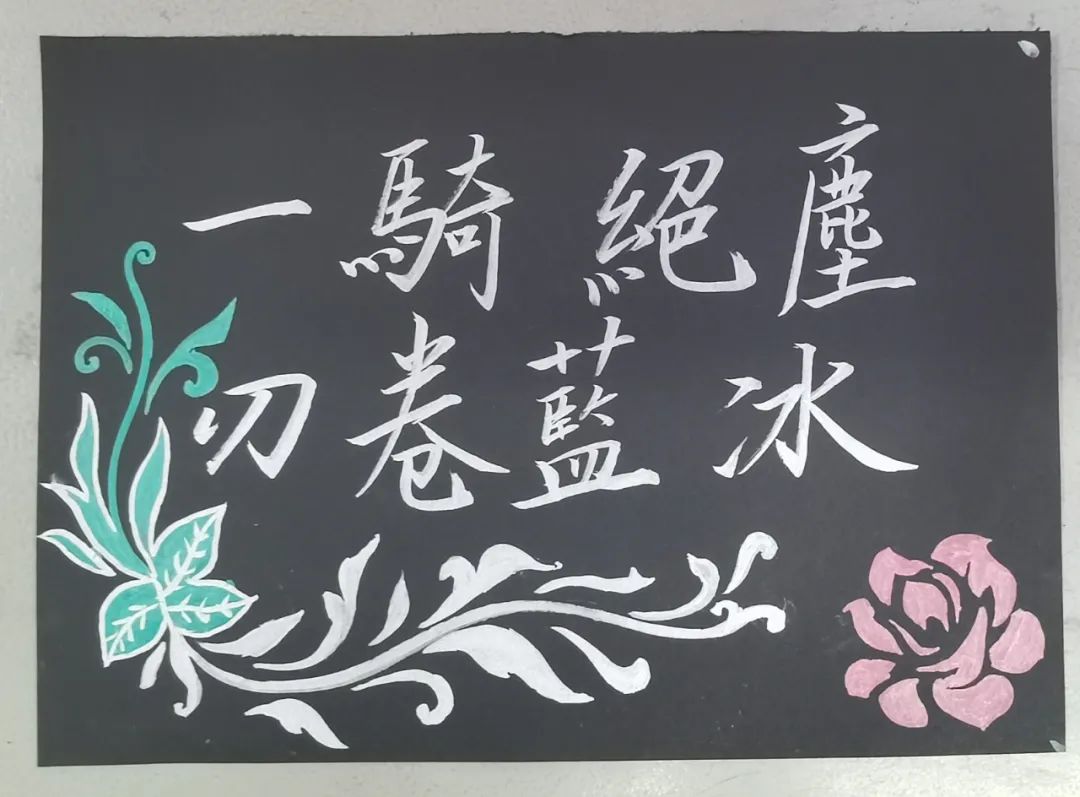 一騎絕塵
勿卷藍冰